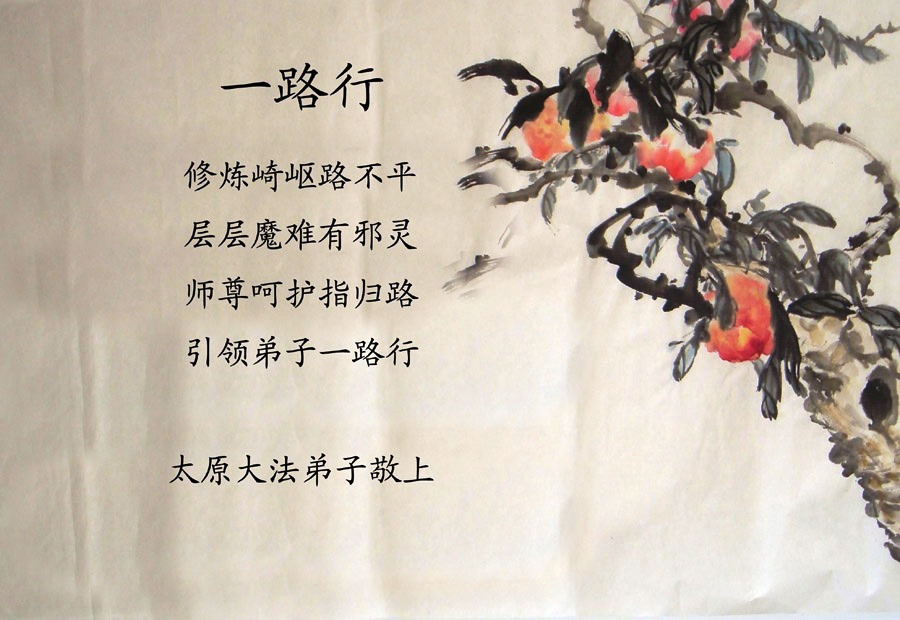 一路行
修炼崎岖路不平
层层魔难有邪灵
师尊呵护指归路
引领弟子一路行
太原大法弟子敬上